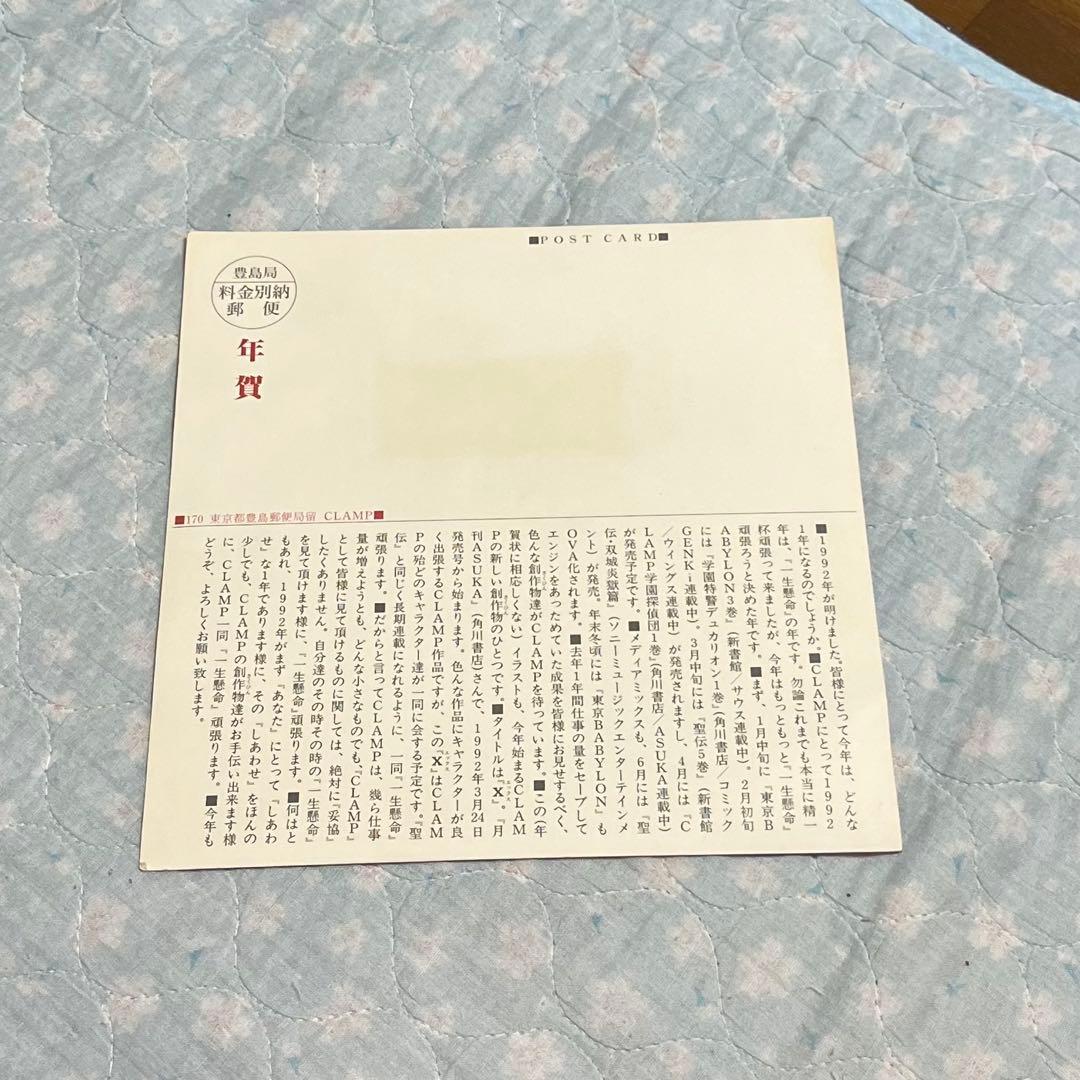 ■POST CARD■
豊島局
料金別納
郵便
年賀
■170 東京都豊島郵便局留 CLAMP■
■1992年が明けました。皆様にとって今年は、どんな
1年になるのでしょうか。■CLAMPにとって1992
年は、『一生懸命』の年です。勿論これまでも本当に精一
杯頑張って来ましたが、今年はもっともっと『一生懸命』
頑張ろうと決めた年です。■まず、1月中旬に『東京B
ABYLON3巻』（新書館／サウス連載中）。2月初旬
には『学園特警デュカリオン1巻』（角川書店／コミック
GENKi連載中）。3月中旬には『聖伝5巻』（新書館
／ウィングス連載中）が発売されますし、4月には『C
LAMP学園探偵団1巻』（角川書店／ASUKA連載中）
が発売予定です。■メディアミックスも、6月には『聖
伝・双城炎獄篇』（ソニーミュージックエンターテインメ
ント）が発売。年末冬頃には『東京BABYLON』も
OVA化されます。■去年1年間仕事の量をセーブして
エンジンをあっためていた成果を皆様にお見せするべく、
色んな創作物達がCLAMPを待っています。■この（年
賀状に相応しくない）イラストも、今年始まるCLAM
Pの新しい創作物のひとつです。■タイトルは『X』。『月
刊ASUKA』（角川書店）さんで、1992年3月24日
発売号から始まります。色んな作品にキャラクターが良
く出張するCLAMP作品ですが、この『X』はCLAM
Pの殆どのキャラクター達が一同に会する予定です。『聖
伝』と同じく長期連載になれるように、一同『一生懸命』
頑張ります。■だからと言ってCLAMPは、幾ら仕事
量が増えようとも、どんな小さなものでも、『CLAMP』
として皆様に見て頂けるものに関しては、絶対に『妥協』
したくありません。自分達のその時その時の『一生懸命』
を見て頂けます様に、『一生懸命』頑張ります。■何はと
もあれ、1992年がまず『あなた』にとって『しあわ
せ』な1年であります様に、その『しあわせ』をほんの
少しでも、CLAMPの創作物達がお手伝い出来ます様
に、CLAMP一同、『一生懸命』頑張ります。■今年も
どうぞ、よろしくお願い致します。